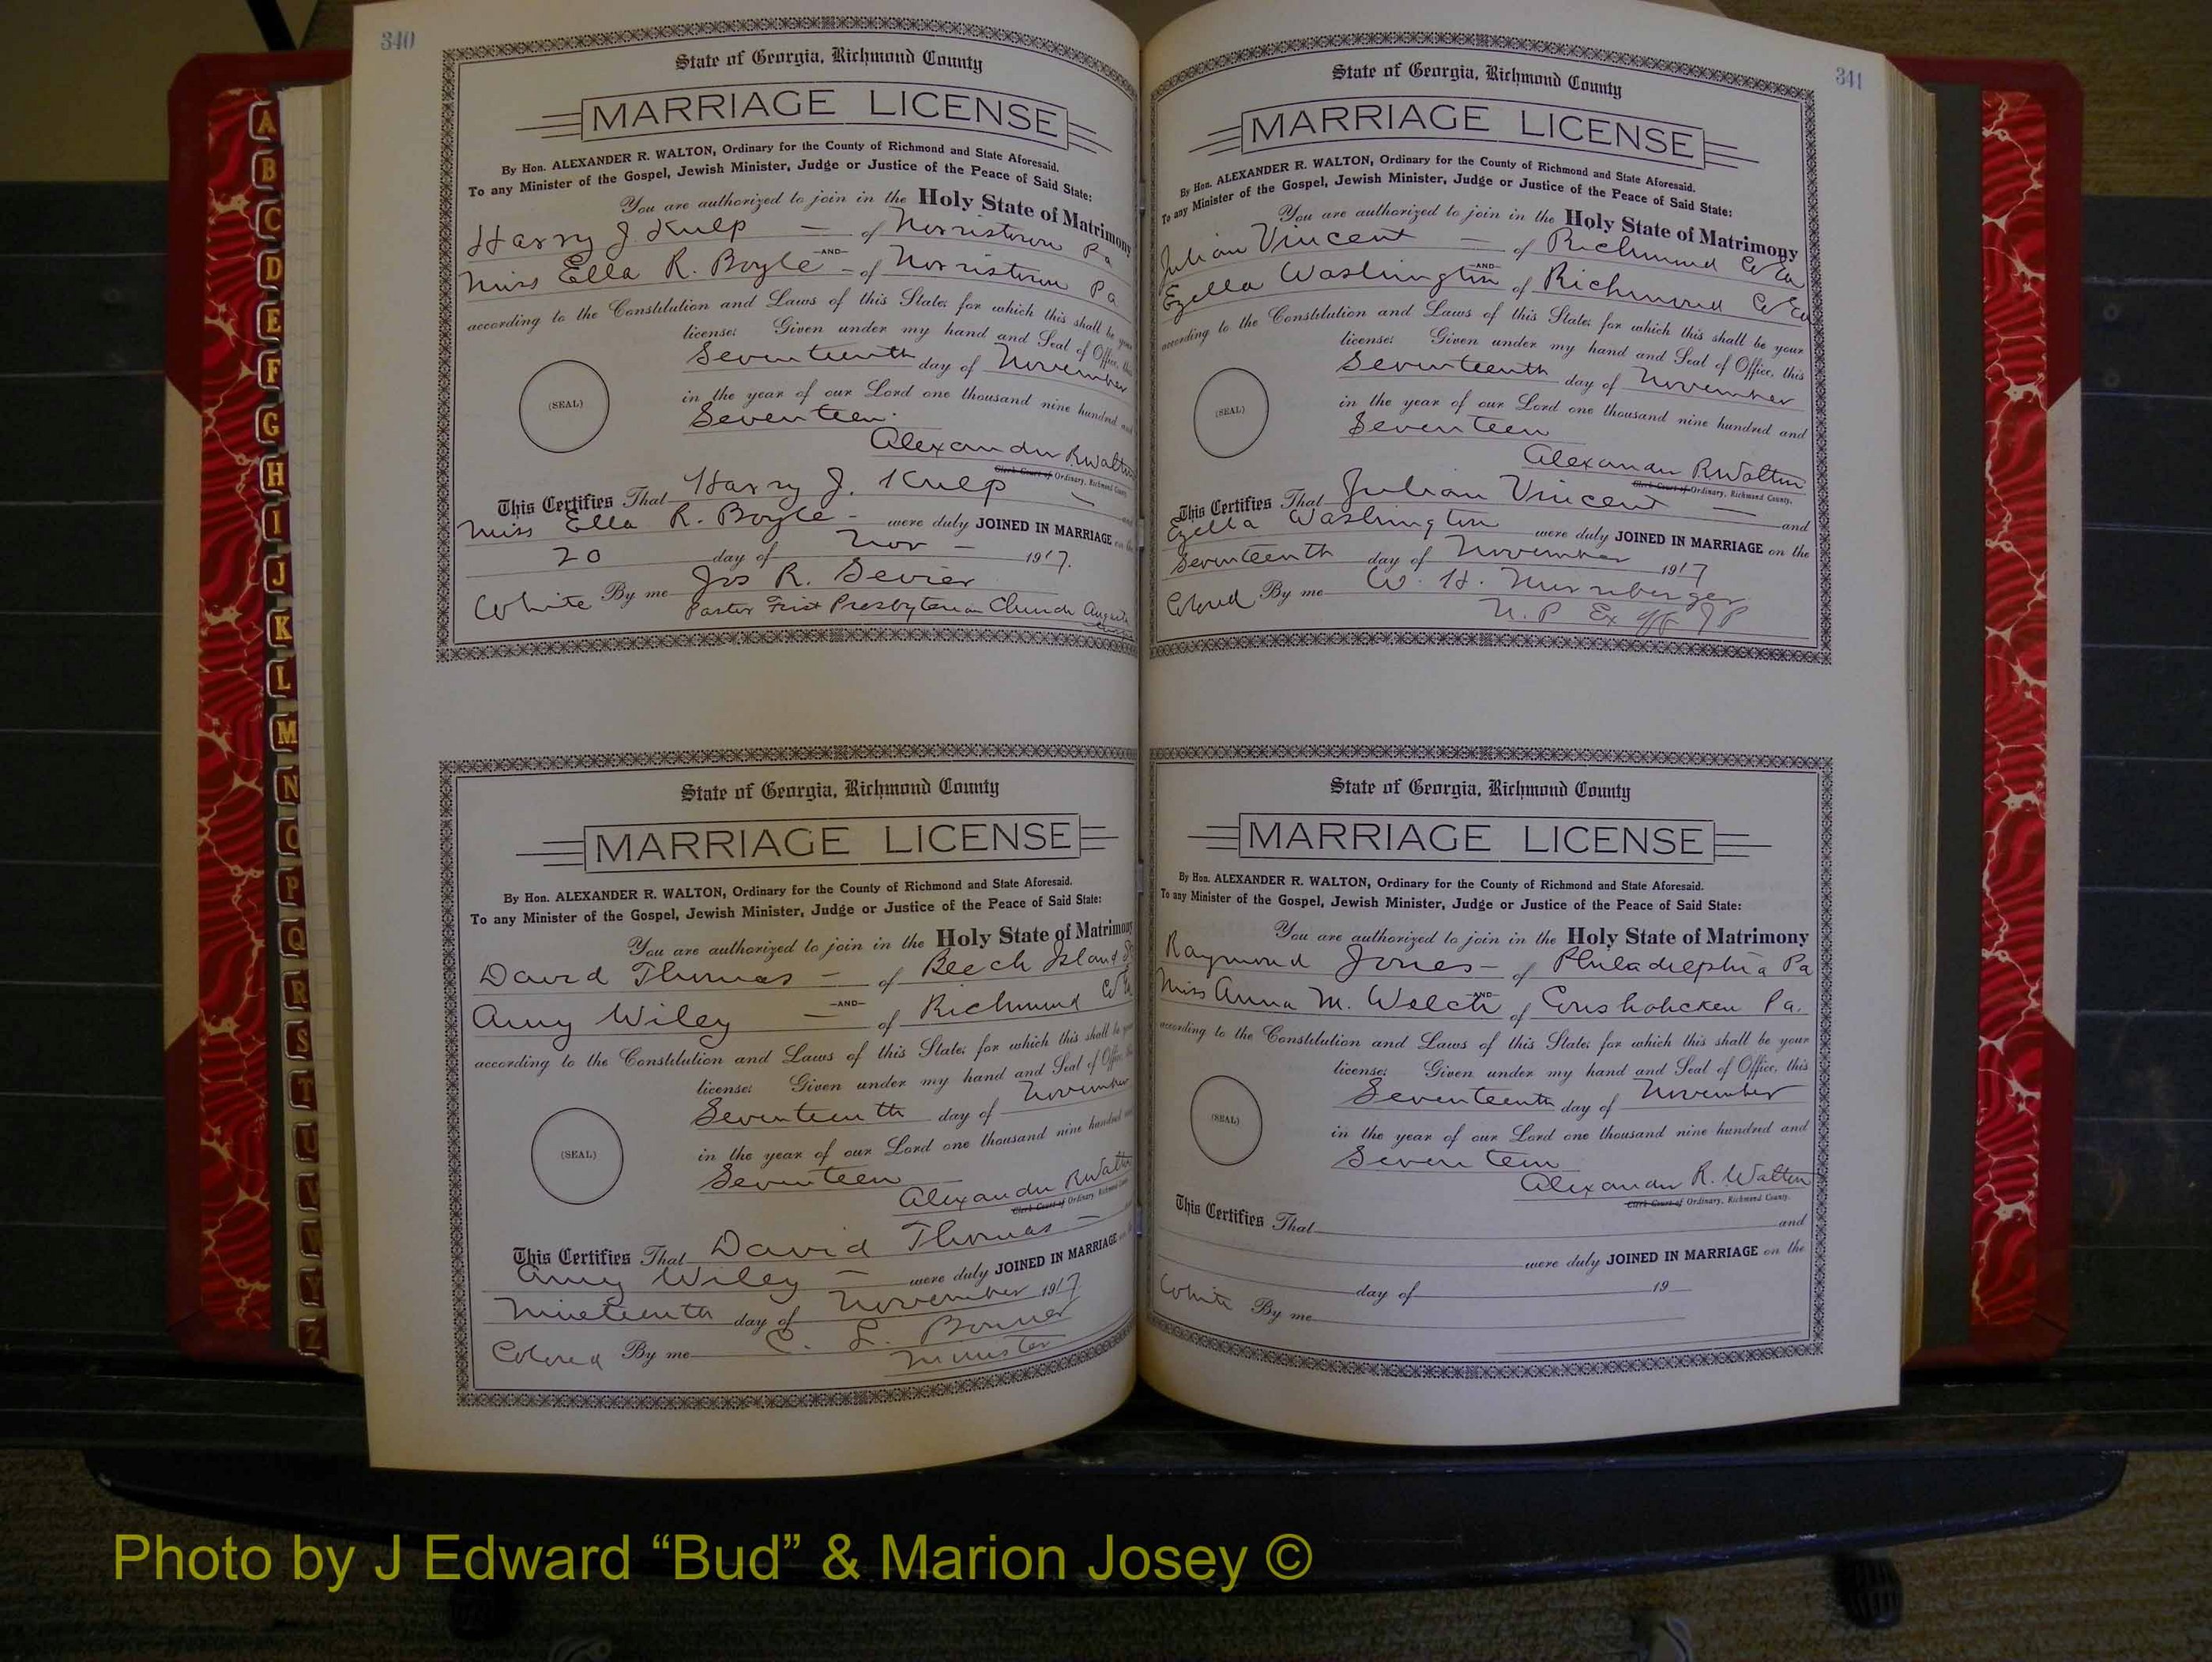 340
State of Georgia, Richmond County
MARRIAGE LICENSE
By Hon. ALEXANDER R. WALTON, Ordinary for the County of Richmond and State Aforesaid.
To any Minister of the Gospel, Jewish Minister, Judge or Justice of the Peace of Said State:
You are authorized to join in the Holy State of Matrimony
Harry J. Kulp — of Norristown Pa
AND
Miss Ella R. Boyle — of Norristown Pa
according to the Constitution and Laws of this State; for which this shall be your
license: Given under my hand and Seal of Office, this
Seventeenth day of November
in the year of our Lord one thousand nine hundred and
(SEAL)
Seventeen
Alexander R Walton
Clerk Court of Ordinary, Richmond County
This Certifies That Harry J. Kulp — and
Miss Ella R. Boyle — were duly JOINED IN MARRIAGE on the
20 day of Nov — 1917.
White By me Jos R. Sevier
Pastor First Presbyterian Church Augusta
State of Georgia, Richmond County
MARRIAGE LICENSE
By Hon. ALEXANDER R. WALTON, Ordinary for the County of Richmond and State Aforesaid.
To any Minister of the Gospel, Jewish Minister, Judge or Justice of the Peace of Said State:
You are authorized to join in the Holy State of Matrimony
David Thomas — of Beech Island
AND
Amy Wiley — of Richmond Co
according to the Constitution and Laws of this State; for which this shall be your
license: Given under my hand and Seal of Office, this
Seventeenth day of November
(SEAL)
in the year of our Lord one thousand nine hundred and
Seventeen
Alexander R Walton
Clerk Court of Ordinary, Richmond County
This Certifies That David Thomas —
Amy Wiley — were duly JOINED IN MARRIAGE
Nineteenth day of November 1917
Colored By me C. L. Bonner
Minister
341
State of Georgia, Richmond County
MARRIAGE LICENSE
By Hon. ALEXANDER R. WALTON, Ordinary for the County of Richmond and State Aforesaid.
To any Minister of the Gospel, Jewish Minister, Judge or Justice of the Peace of Said State:
You are authorized to join in the Holy State of Matrimony
Julian Vincent — of Richmond Co Ga
AND
Ezella Washington of Richmond Co Ga
according to the Constitution and Laws of this State; for which this shall be your
license: Given under my hand and Seal of Office, this
Seventeenth day of November
(SEAL)
in the year of our Lord one thousand nine hundred and
Seventeen
Alexander R Walton
Clerk Court of Ordinary, Richmond County.
This Certifies That Julian Vincent — and
Ezella Washington were duly JOINED IN MARRIAGE on the
Seventeenth day of November 1917
Colored By me W. H. Nurnberger
N. P Ex off J P
State of Georgia, Richmond County
MARRIAGE LICENSE
By Hon. ALEXANDER R. WALTON, Ordinary for the County of Richmond and State Aforesaid.
To any Minister of the Gospel, Jewish Minister, Judge or Justice of the Peace of Said State:
You are authorized to join in the Holy State of Matrimony
Raymond Jones — of Philadelphia Pa
AND
Miss Anna M. Welch of Conshohcken Pa.
according to the Constitution and Laws of this State; for which this shall be your
license: Given under my hand and Seal of Office, this
Seventeenth day of November
(SEAL)
in the year of our Lord one thousand nine hundred and
Seventeen
Alexander R. Walton
Clerk Court of Ordinary, Richmond County.
This Certifies That and
were duly JOINED IN MARRIAGE on the
day of 19
White By me
A
B
C
D
E
F
G
H
I
J
K
L
M
N
O
P
Q
R
S
T
U
V
W
Y
Z
Photo by J Edward “Bud” & Marion Josey ©